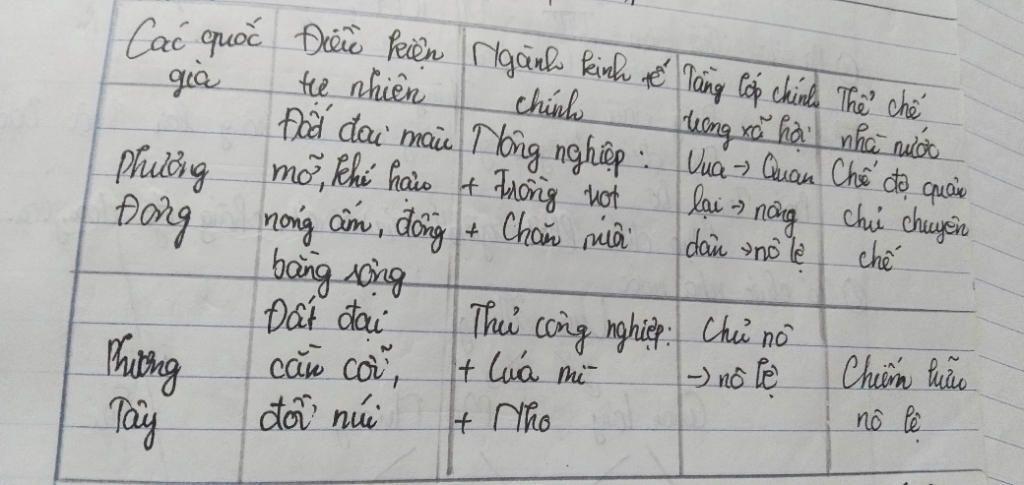 Các quốc gia
Điều kiện tự nhiên
Ngành kinh tế chính
Tầng lớp chính trong xã hội
Thể chế nhà nước
Phương Đông
Đất đai màu mỡ, khí hậu nóng ẩm, đồng bằng sông
Nông nghiệp:
+ Trồng trọt
+ Chăn nuôi
Vua → Quan lại → nông dân → nô lệ
Chế độ quân chủ chuyên chế
Phương Tây
Đất đai cằn cỗi, đồi núi
Thủ công nghiệp:
+ Lúa mì
+ Nho
Chủ nô → nô lệ
Chiếm hữu nô lệ